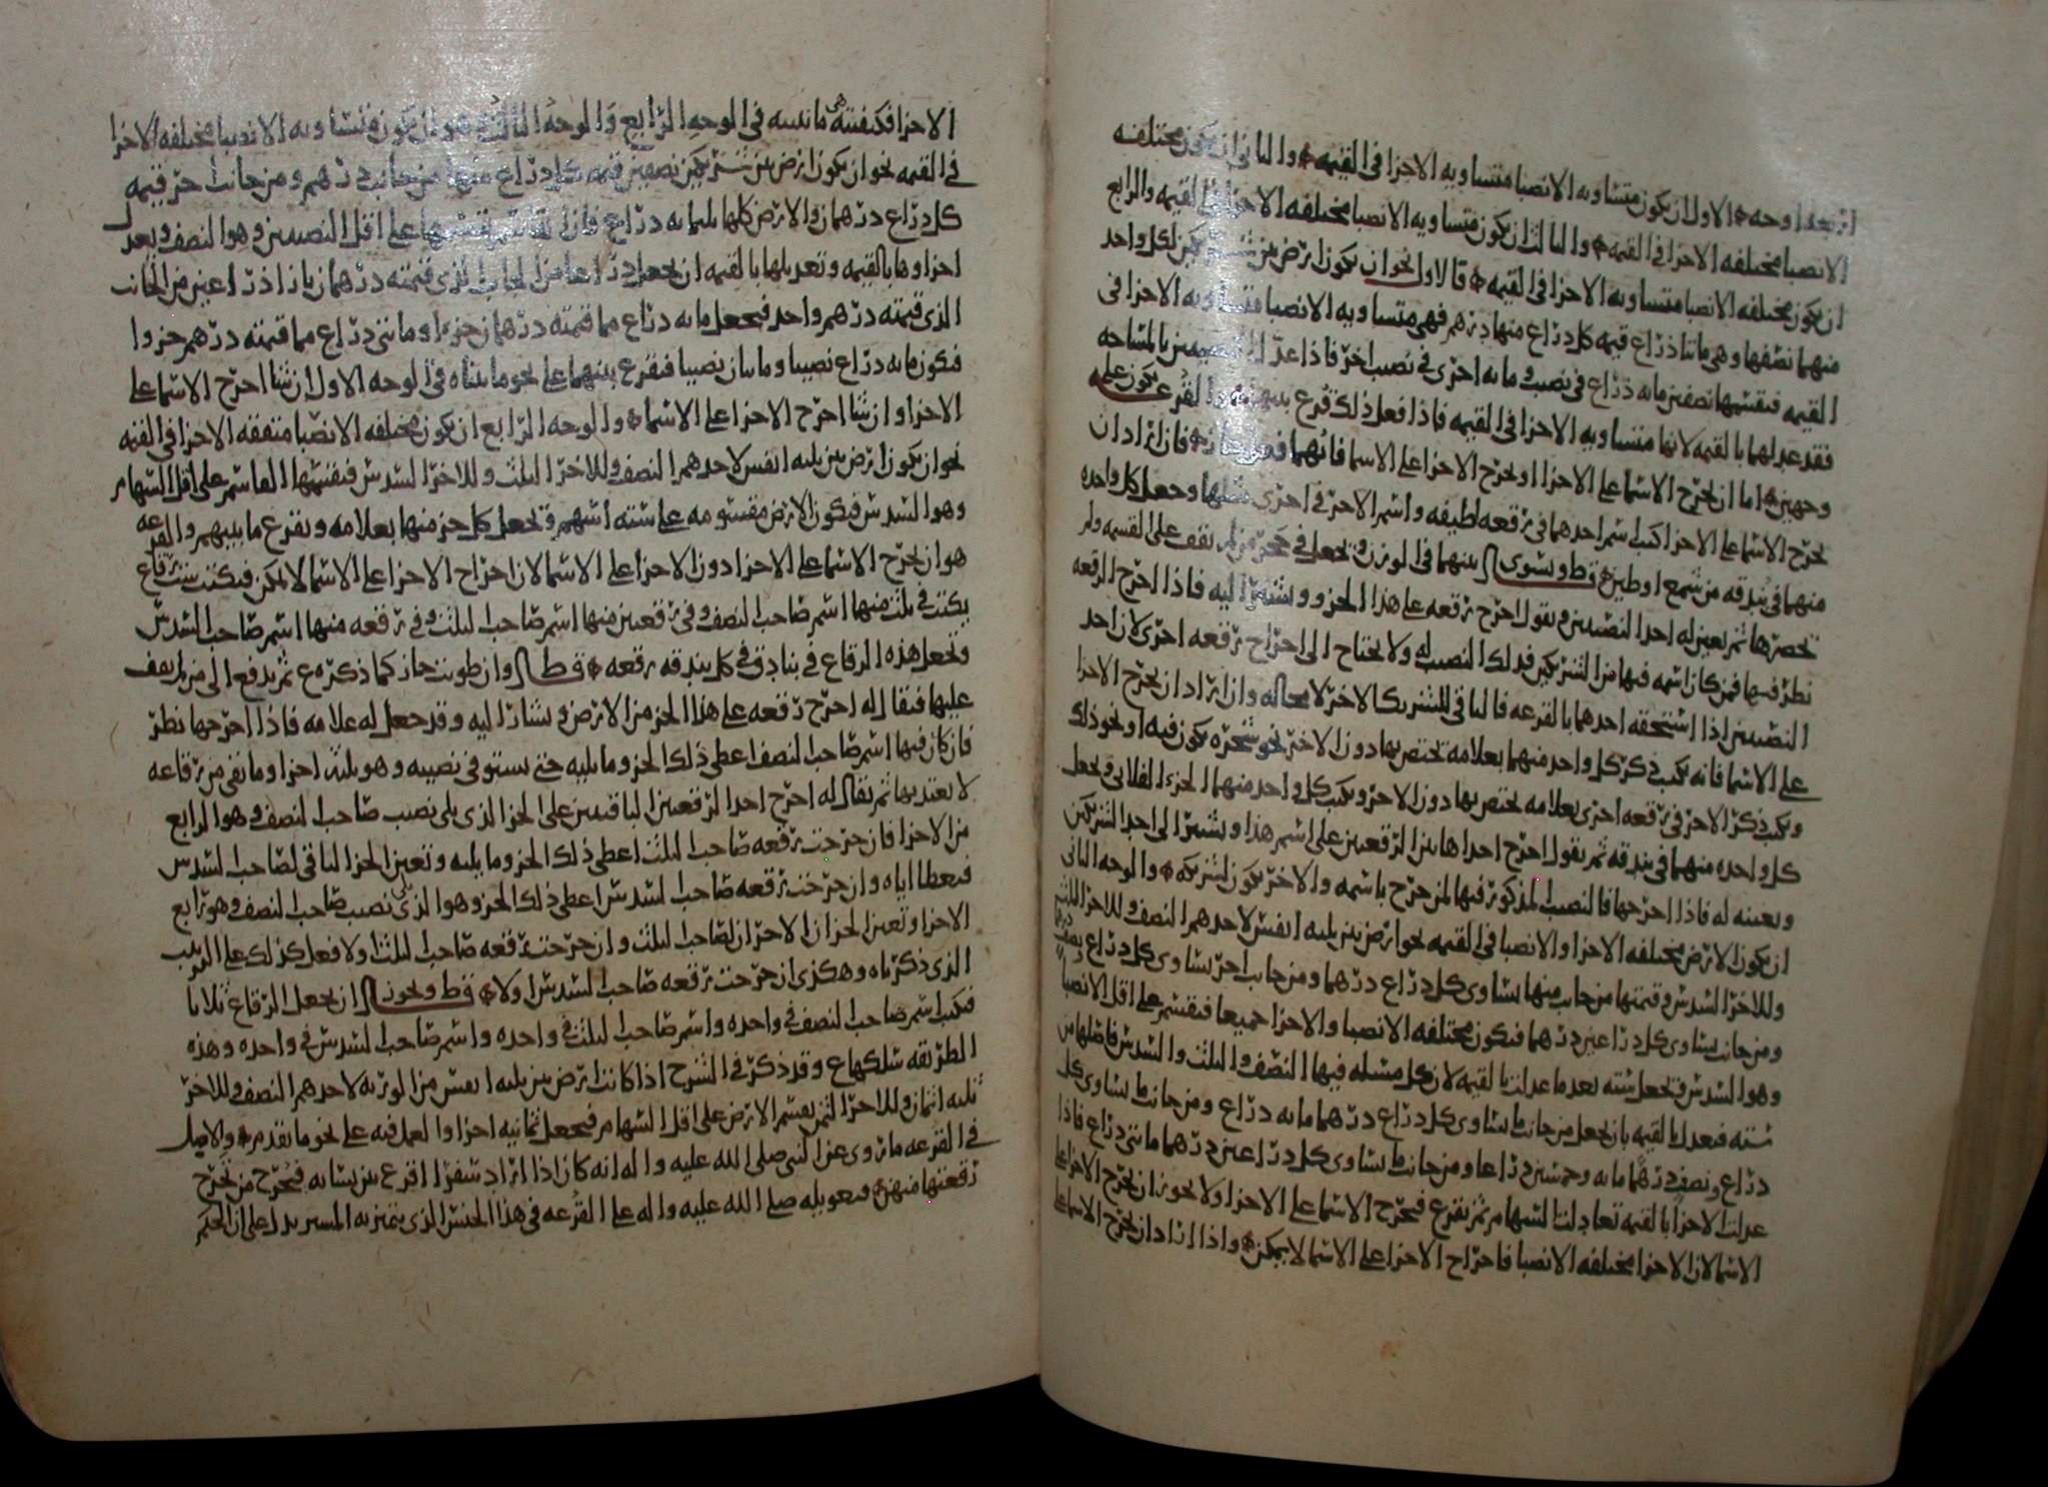 اربعه اوجه الاول ان يكون متساويه الانصبا متساويه الاجزا في القيمه والثاني ان يكون مختلفه
الانصبا مختلفه الاجزا في القيمه والثالث ان يكون متساويه الانصبا مختلفه الاجزا في القيمه والرابع
ان يكون مختلفه الانصبا متساويه الاجزا في القيمه فالاول نحو ان يكون ارض بين شريكين لكل واحد
منهما نصفها وهي مائتا ذراع قيمه كل ذراع منها درهم فهي متساويه الانصبا متساويه الاجزا في
القيمه فيقسمها نصفين مايه ذراع في نصيب ومايه اخرى في نصيب اخر فاذا عدل النصيبين بالمساحه
فقد عدلهما بالقيمه لانها متساويه الاجزا في القيمه فاذا فعل ذلك قرع بينهما والقرع يكون على
وجهين اما ان يخرج الاسما على الاجزا او يخرج الاجزا على الاسما فايهما فعل جاز فان اراد ان
يخرج الاسما على الاجزا كتب اسم احدهما في رقعه لطيفه واسم الاخر في اخرى مثلها وجعل كل واحده
منهما في بندقه من شمع او طين قط ويسوى بينهما في الوزن ويجعل في حجر من لم يقف على القسمه ولم
يحضرها ثم يعين له احد النصيبين ويقول اخرج رقعه على هذا الجزو ويشير اليه فاذا اخرج الرقعه
نظر فيها فمن كان اسمه فيها من الشريكين فذلك النصيب له ولا يحتاج الى اخراج رقعه اخرى لان احد
النصيبين اذا استحقه احدهما بالقرعه فالباقي للشريك الاخر لا محاله وان اراد ان يخرج الاجزا
على الاسما فانه يكتب ذكر كل واحد منهما بعلامه يختص بها دون الاخر نحو شجره يكون فيه او نحو ذلك
ويكتب ذكر الاخر في رقعه اخرى بعلامه يختص بها دون الاخر ويكتب كل واحد منهما الجزء الفلاني ويجعل
كل واحده منهما في بندقه ثم يقول اخرج احدا هاتين الرقعتين على اسم هذا ويشير الى احد الشريكين
ويعينه له فاذا اخرجها فالنصيب المذكور فيها لمن خرج باسمه والاخر يكون لشريكه والوجه الثاني
ان يكون الارض مختلفه الاجزا والانصبا في القيمه نحو ارض بين ثلثه انفس لاحدهم النصف وللاخر الثلث
وللاخر السدس وقيمتها من جانب منها يساوى كل ذراع درهما ومن جانب اخر يساوى كل ذراع نصف درهم
ومن جانب يساوى كل ذراعين درهما فيكون مختلفه الانصبا والاجزا جميعا فيقسم على اقل الانصبا
وهو السدس فيجعل سته بعد ما عدلت بالقيمه لان كل مسئله فيها النصف والثلث والسدس فاصلها من
سته فيعدل بالقيمه بان يجعل من جانب ما يساوى كل ذراع درهما مايه ذراع ومن جانب ما يساوى كل
ذراع ونصف درهما مايه وخمسين ذراعا ومن جانب ما يساوى كل ذراعين درهما مائتي ذراع فاذا
عدلت الاجزا بالقيمه تعادلت السهام ثم يقرع فيخرج الاسما على الاجزا ولا يجوز ان يخرج الاجزا على
الاسما لان الاجزا مختلفه الانصبا فاخراج الاجزا على الاسما لا يمكن واذا اراد ان يخرج الاسما على
الاجزا فكيفيته هي ما نبينه في الوجه الرابع والوجه الثالث هو ان يكون متساويه الانصبا مختلفه الاجزا
في القيمه نحو ان يكون ارض بين شريكين نصفين قيمه كل ذراع منها من جانب درهم ومن جانب اخر قيمه
كل ذراع درهمان والارض كلها ثلثمايه ذراع فان القاسم يقسمها على اقل النصيبين وهو النصف ويعدل
اجزاوها بالقيمه وتعديلها بالقيمه ان يجعل ذراعا من الجانب الذي قيمته درهمان بازا ذراعين من الجانب
الذي قيمته درهم واحد فيجعل مايه ذراع مما قيمته درهمان جزءا ومائتي ذراع مما قيمته درهم جزوا
فيكون مايه ذراع نصيبا ومائتان نصيبا فيقرع بينهما على نحو ما بيناه في الوجه الاول ان شا اخرج الاسما على
الاجزا وان شا اخرج الاجزا على الاسما والوجه الرابع ان يكون مختلفه الانصبا متفقه الاجزا في القيمه
نحو ان يكون ارض بين ثلثه انفس لاحدهم النصف وللاخر الثلث وللاخر السدس فيقسمها القاسم على اقل السهام
وهو السدس فيكون الارض مقسومه على سته اسهم ويجعل كل جزء منها بعلامه ويقرع ما بينهم والقرعه
هو ان يخرج الاسما على الاجزا دون الاجزا على الاسما لان اخراج الاجزا على الاسما لا يمكن فيكتب ست رقاع
يكتب في ثلث منها اسم صاحب النصف وفي رقعتين منها اسم صاحب الثلث وفي رقعه منها اسم صاحب السدس
وتجعل هذه الرقاع في بنادق في كل بندقه رقعه قط وان طويت جاز كما ذكره ع ثم يدفع الى من لم يقف
عليها فيقال له اخرج رقعه على هذا الجزء من الارض ويشار اليه وقد جعل له علامه فاذا اخرجها نظر
فان كان فيها اسم صاحب النصف اعطي ذلك الجزو وما يليه حتى يستوفي نصيبه وهو ثلثه اجزا وما بقي من رقاعه
لا يعتد بها ثم يقال له اخرج احدا الرقعتين الباقيتين على الجزا الذي يلي نصيب صاحب النصف وهو الرابع
من الاجزا فان خرجت رقعه صاحب الثلث اعطي ذلك الجزو وما يليه وتعين الجزا الباقي لصاحب السدس
فيعطا اياه وان خرجت رقعه صاحب السدس اعطي ذلك الجزو وهو الذي يلي نصيب صاحب النصف وهو رابع
الاجزا وتعين الجزان الاخران لصاحب الثلث وان خرجت رقعه صاحب الثلث اولا فعل كذلك على الترتيب
الذي ذكرناه وهكذى ان خرجت رقعه صاحب السدس اولا قط ونحوز ان يجعل الرقاع ثلاثا
فيكتب اسم صاحب النصف في واحده واسم صاحب الثلث في واحده واسم صاحب السدس في واحده وهذه
الطريقه سلكها ع وقد ذكر في الشرح اذا كانت ارض بين ثلثه انفس من الورثه لاحدهم النصف وللاخر
ثلثه اثمان وللاخر الثمن يقسم الارض على اقل السهام فيجعل ثمانيه اجزا والعمل فيه على نحو ما تقدم والاصل
في القرعه ما روى عن النبي صلى الله عليه واله انه كان اذا اراد سفرا اقرع بين نسائه فيخرج من يخرج
رقعتها منهن فتعويله صلى الله عليه واله على القرعه في هذا الجنس الذي يتميز به يدل على ان الحكم